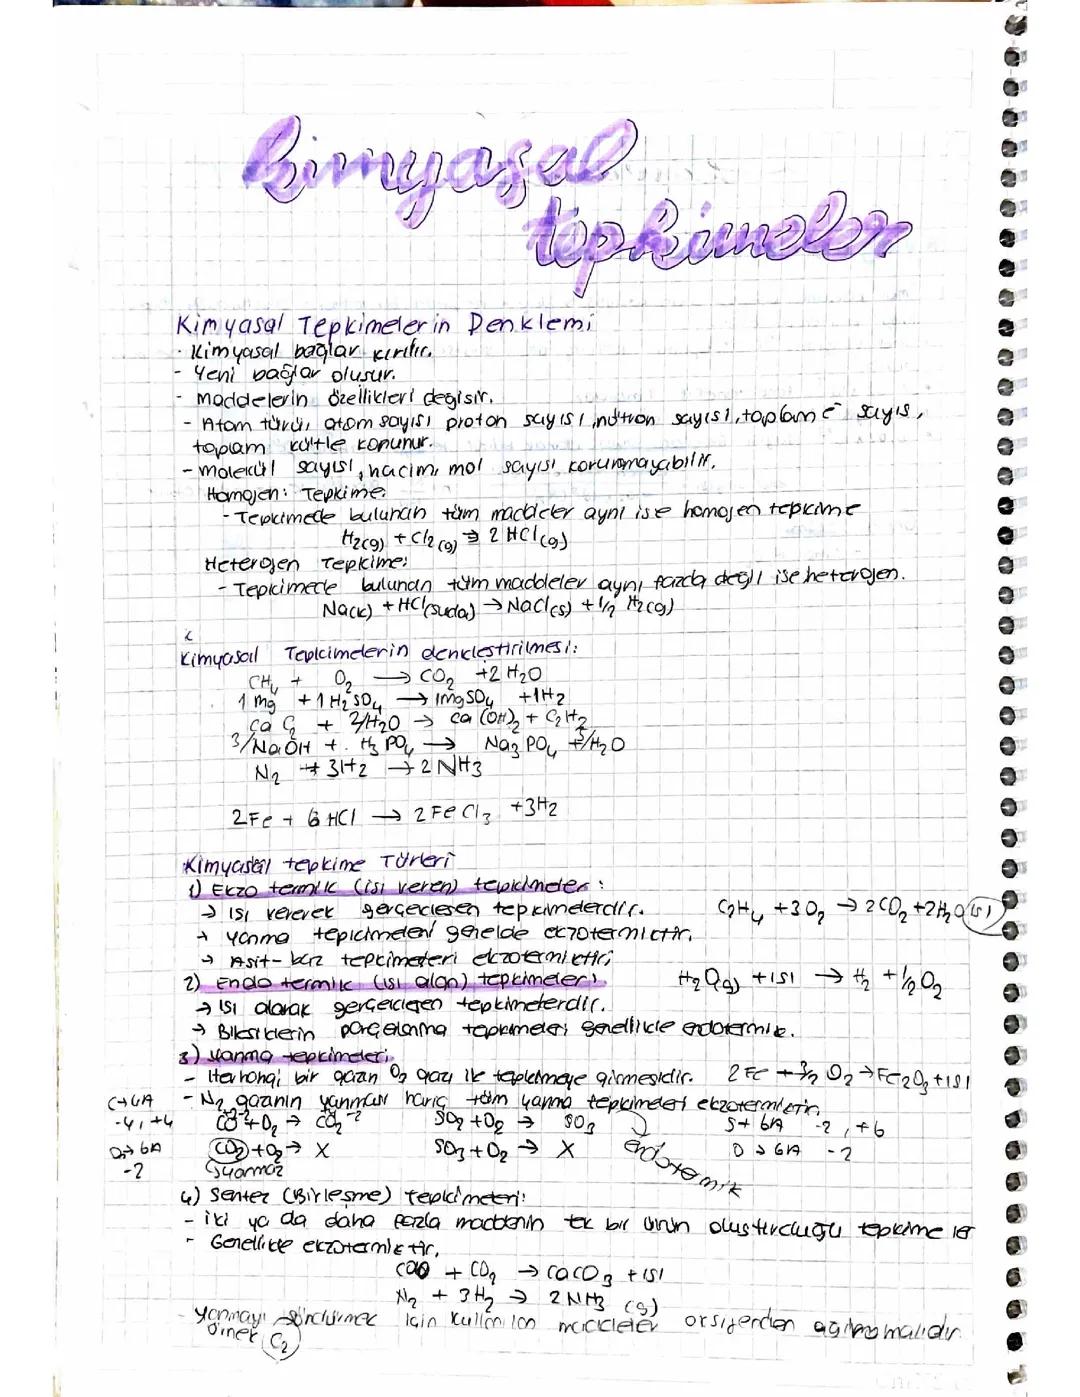 kimyasal
tepkimeler
Kimyasal Tepkimelerin Denklemi
· Kimyasal bağlar kırılır.
- Yeni bağlar oluşur.
- maddelerin özellikleri değişir.
- Atom türü, atom sayısı proton sayısı, nötron sayısı, toplam e⁻ sayısı,
toplam kütle korunur.
- molekül sayısı, hacim, mol sayısı korunmayabilir.
Homojen: Tepkime:
- Tepkimede bulunan tüm maddeler aynı ise homojen tepkime
H₂(g) + Cl₂(g) → 2 HCl(g)
Heterojen Tepkime:
- Tepkimede bulunan tüm maddeler aynı fazda değil ise heterojen.
Na(k) + HCl(suda) → NaCl(s) + 1/2 H₂(g)
Kimyasal Tepkimelerin denkleştirilmesi:
CH₄ + O₂ → CO₂ + 2 H₂O
1 mg + 1 H₂SO₄ → 1mgSO₄ + 1H₂
Ca C₂ + 2/H₂O → Ca(OH)₂ + C₂H₂
3/NaOH + H₃PO₄ → Na₃PO₄ + 3/H₂O
N₂ + 3H₂ → 2NH₃
2Fe + 6HCl → 2FeCl₃ + 3H₂
Kimyasal tepkime Türleri
1) Ekzo termik (ısı veren) tepkimeler:
→ ısı vererek gerçekleşen tepkimelerdir. C₂H₄ + 3O₂ → 2CO₂ + 2H₂O (ısı)
→ yanma tepkimeleri genelde ekzotermiktir.
→ Asit - baz tepkimeleri ekzotermiktir;
2) Endo termik (ısı alan) tepkimeler: H₂O(g) + ısı → H₂ + 1/2 O₂
→ ısı alarak gerçekleşen tepkimelerdir.
→ Bileşiklerin parçalanma tepkimeleri genellikle endotermik.
3) yanma tepkimeleri
- Herhangi bir gazın O₂ gazı ile tepkimeye girmesidir. 2Fe + 3/2 O₂ → Fe₂O₃ + ısı
- N₂ gazının yanması hariç tüm yanma tepkimeleri ekzotermiktir.
C→4A
-4, +4 CO⁺²⁻² + O₂ → CO₂⁻² SO₂ + O₂ → SO₃ S→ 6A -2, +6
O→ 6A (CO₂) + O₂ → X SO₃ + O₂ → X endotermik O → 6A -2
-2 yanmaz
4) Sentez (Birleşme) tepkimeleri:
- iki ya da daha fazla maddenin tek bir ürün oluşturduğu tepkimeler
- Genellikle ekzotermiktir.
CaO + CO₂ → CaCO₃ + ısı
N₂ + 3H₂ → 2NH₃ (g)
- yanmayı söndürmek için kullanılan maddeler oksijenden ağır olmalıdır
örnek